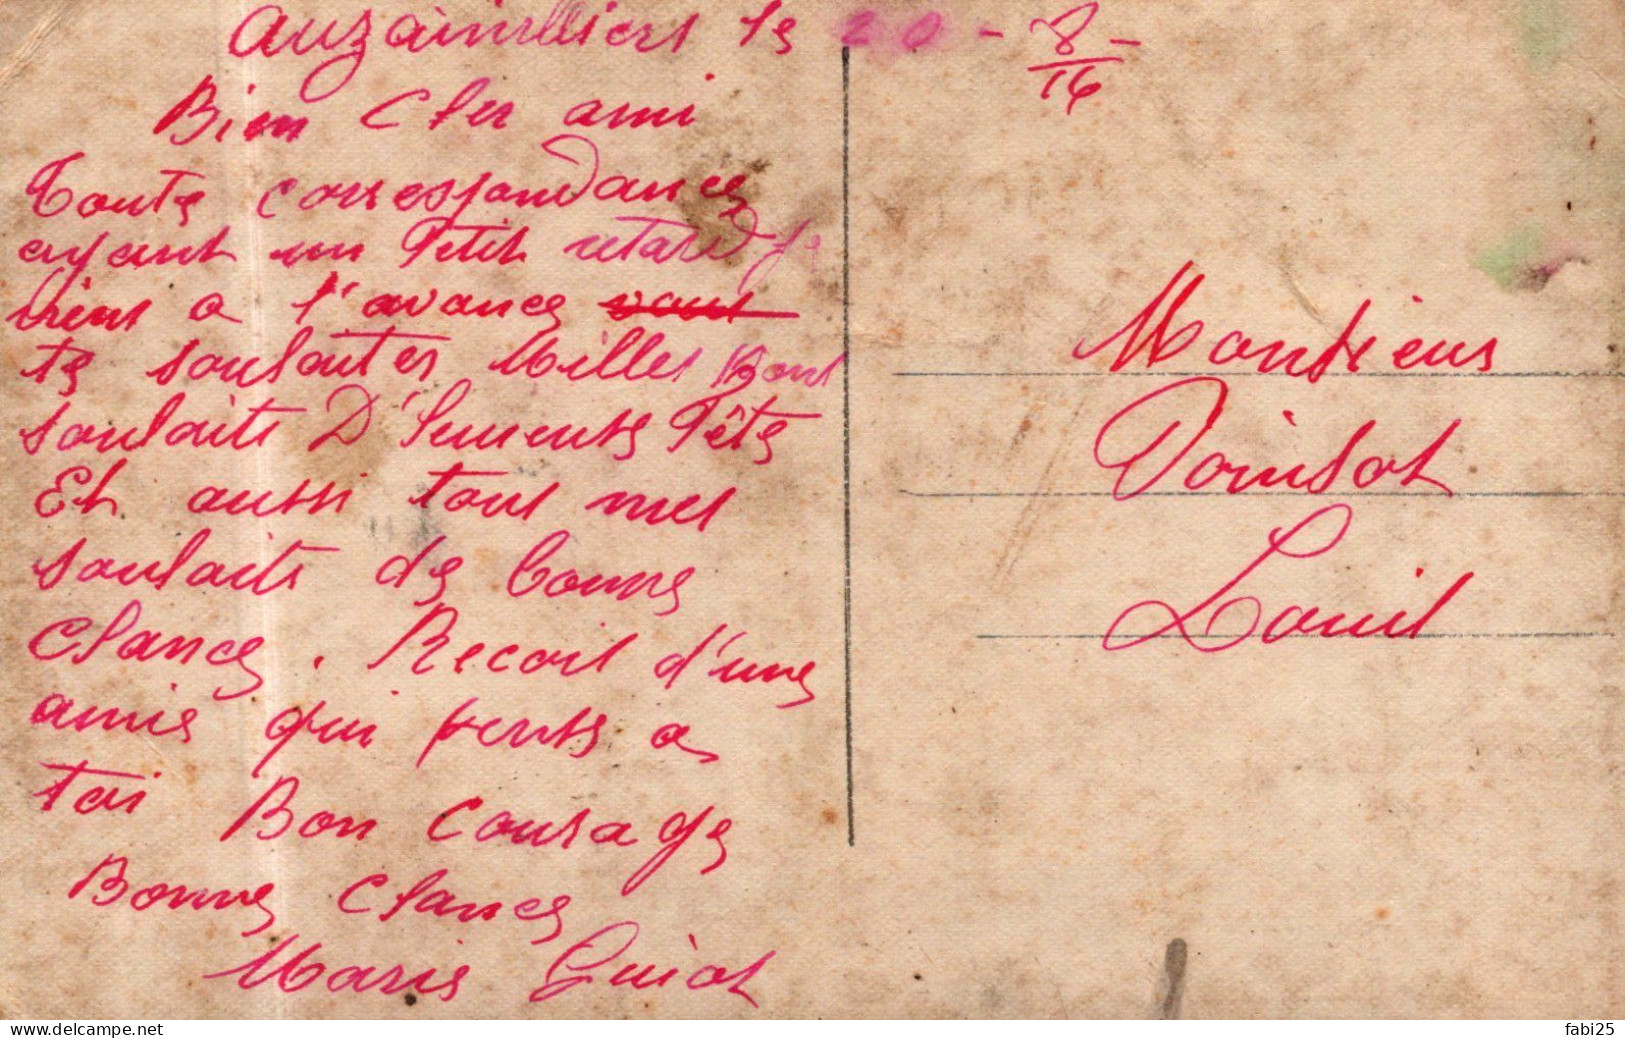 Auzainvilliers le 20 - 8/16 -
Bien Cher ami
Toute correspondance
ayant un Petit retard je
viens a l'avance vous
te souhaiter Milles Bons
souhaits D'heureuse Fête
Et aussi tous mes
souhaits de bonne
Chance. Recois d'une
amie qui pense a
toi Bon Courage
Bonne Chance
Marie Guiot
Monsieur
Louis
www.delcampe.net
fabi25